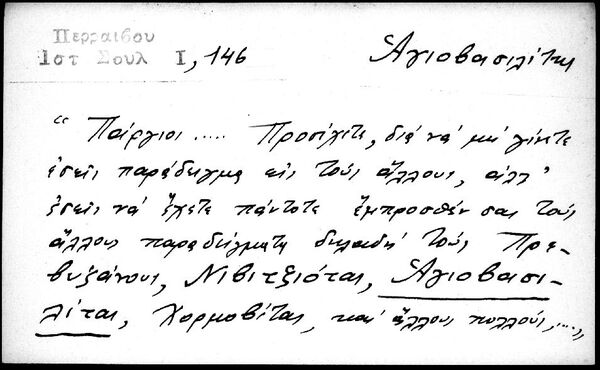 Περραιβου
Ιστ Σουλ Ι, 146
Ἁγιοβασιλίτης
“ Πάργιοι ..... Προσέχετε, διά νά μή γίνετε
ἐσεῖς παράδειγμα εἰς τούς ἄλλους, ἀλλ’
ἐσεῖς νά ἔχετε πάντοτε ἔμπροσθέν σας τούς
ἄλλους παραδείγματα δηλαδή τούς Πρε-
βυζάνους, Νιβιτζιότας, Ἁγιοβασι-
λίτας, Χορμοβίτας, καί ἄλλους πολλούς, ....„